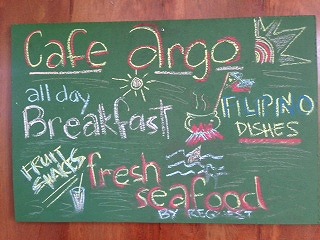 Cafe argo
all day
Breakfast
FILIPINO
DISHES
FRUIT
SHAKES
fresh
seafood
BY REQUEST